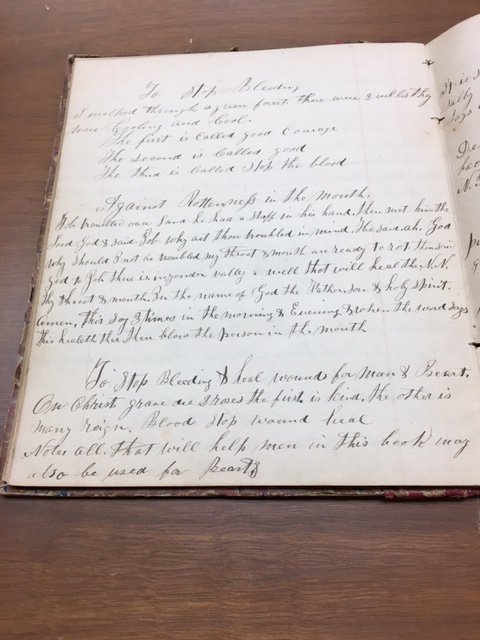 To Stop Bleeding
I walked through a green forest there were 3 wells they
were Cooling and Cool.
The first is Called good Courage
The Second is Called good
The third is Called Stop the blood
Against Rottenness in the Mouth.
Job travelled over Land he had a Staff in his hand, then met him the
Lord God & said. Job why art thou troubled in mind, he said. ah. God
why should I not be troubled my throat & mouth are ready to rot then said
god to Job there is in yonder valley a well that will heal thee N. N.
thy throat & mouth. In the name of God the Father, Son & holy Spirit.
Amen, this say 3 times in the morning & Evening & when the word says
this healeth thee, then blow the person in the mouth
To Stop Bleeding & heal wounds for Man & Beast.
On Christ grave are 3 roses the first is kind, the other is
many reign. Blood Stop wound heal
Notes all that will help men in this book may
also be used for Beasts